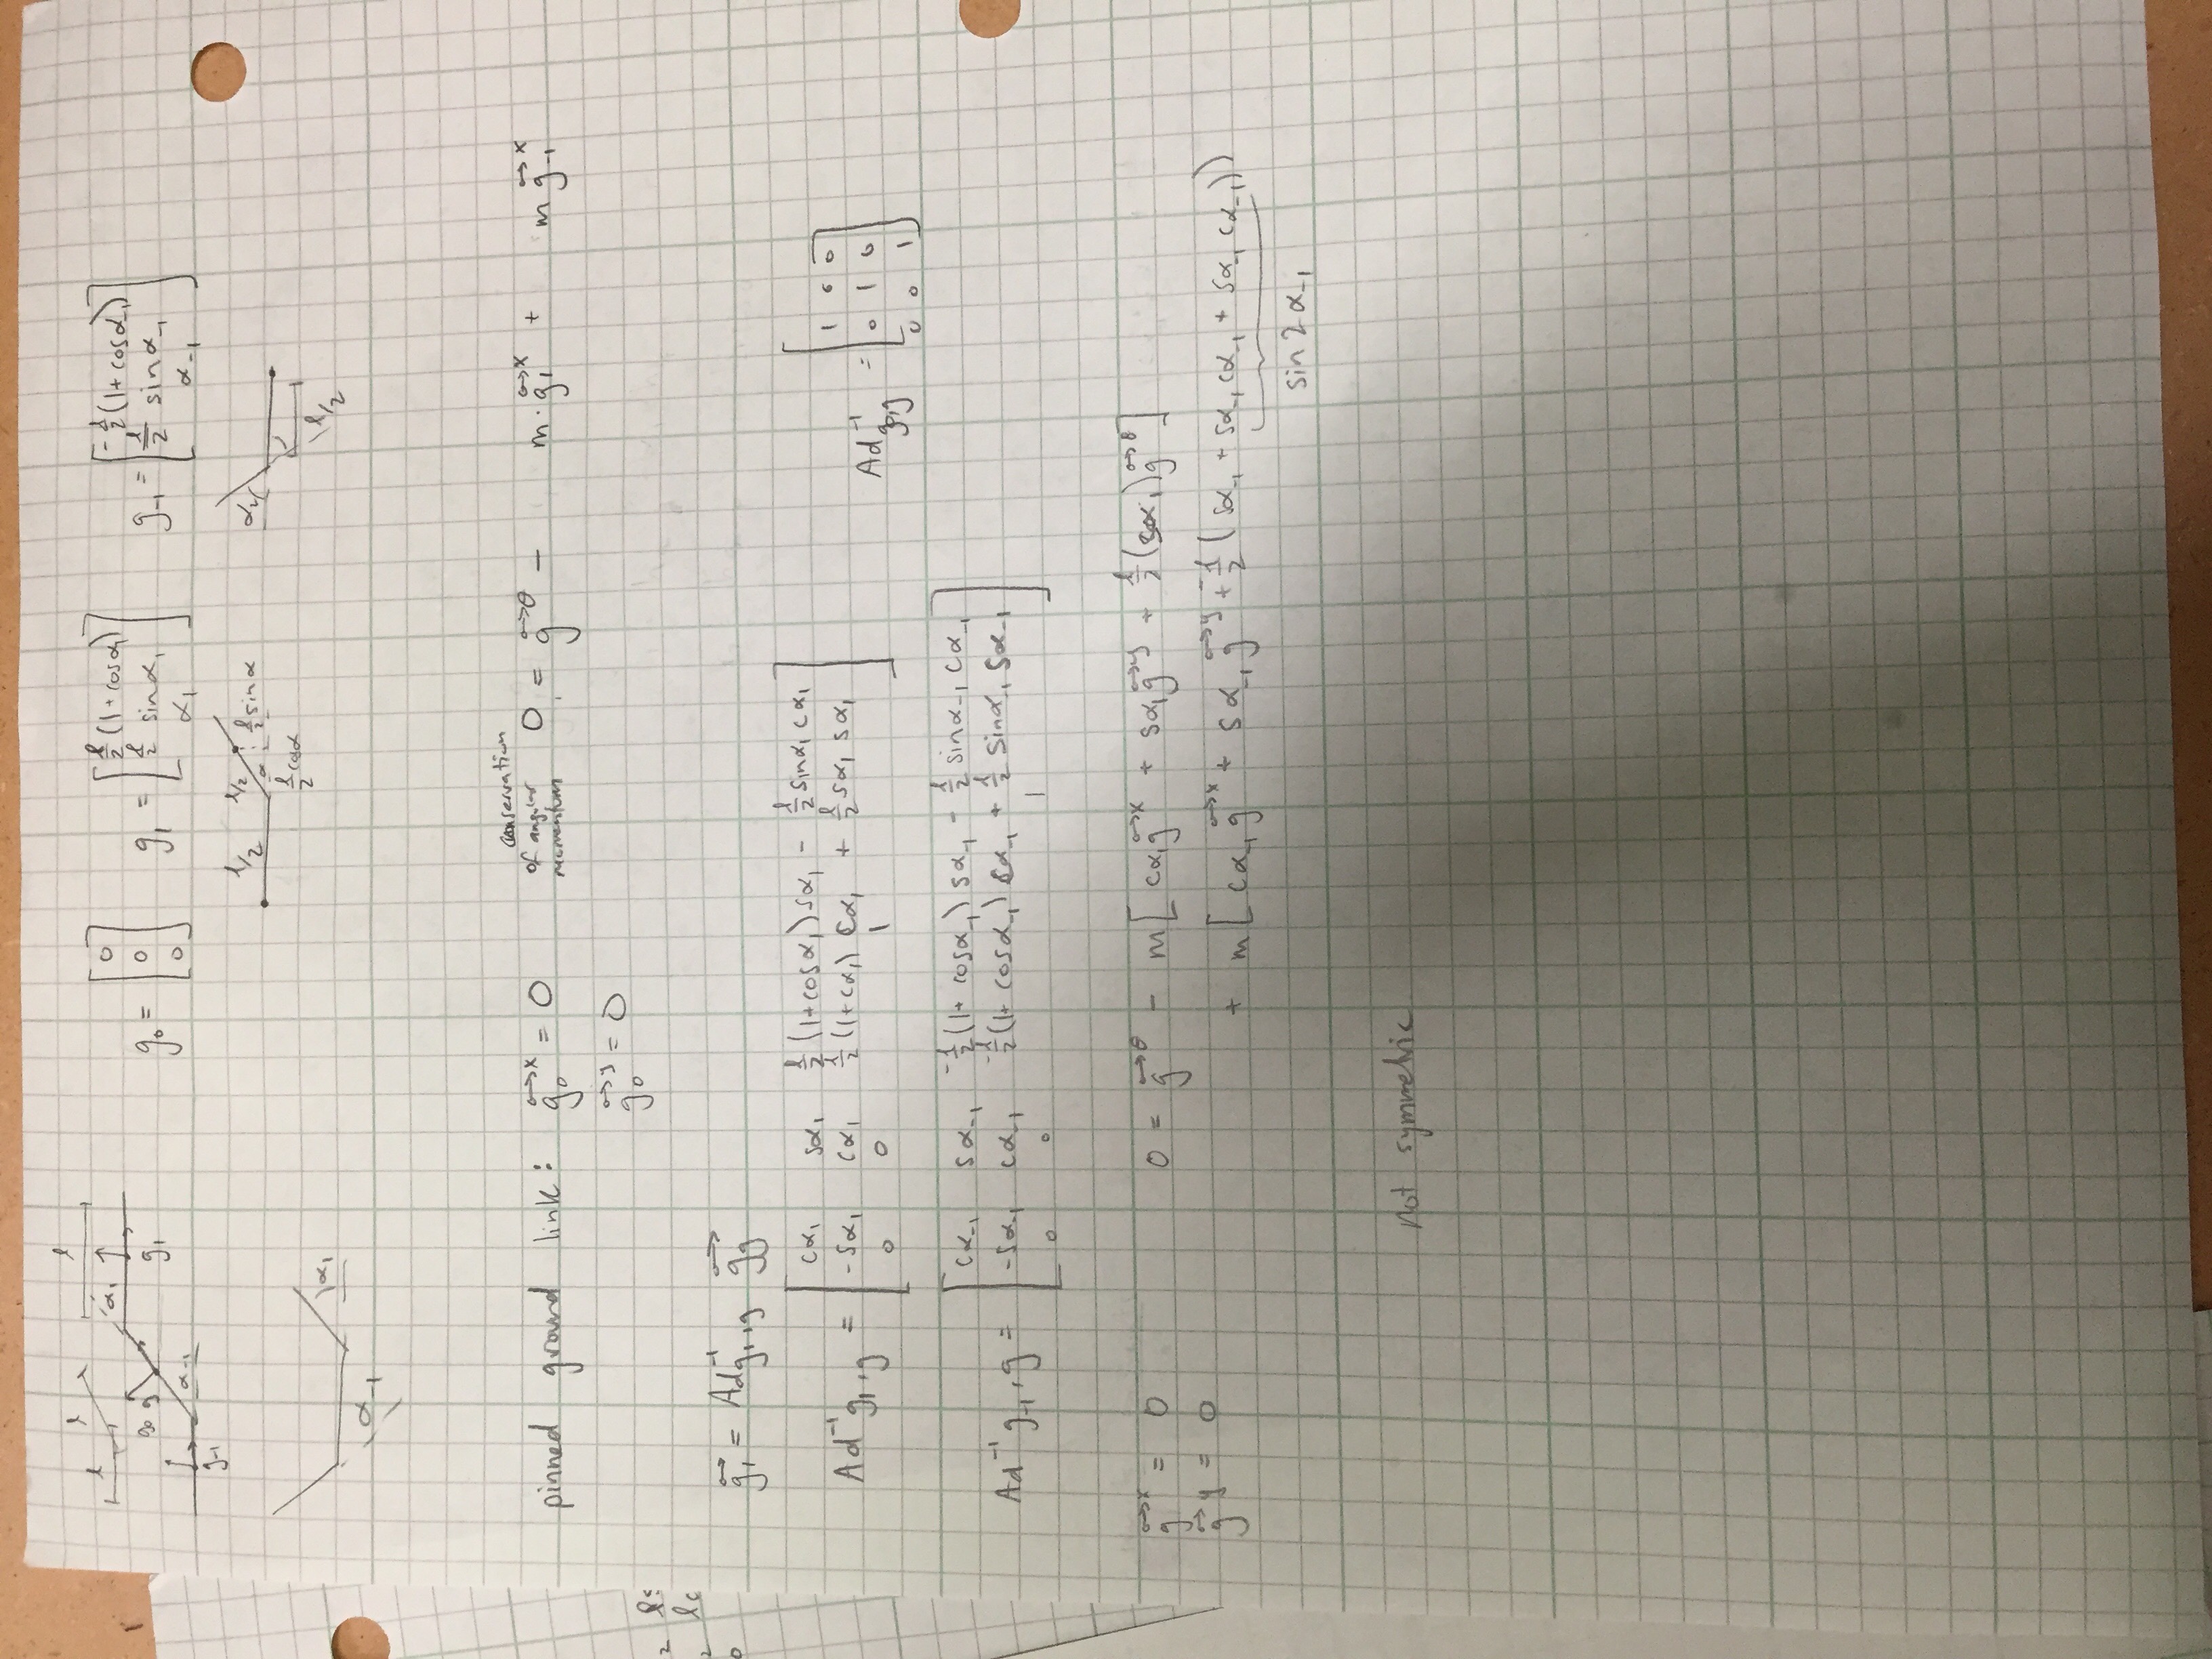 l l l
α₁
g₀ g g₁
α₋₁
g₋₁
g₀ = [0 0 0]
g₁ = [l/2 (1+cosα₁) l/2 sinα₁ α₁]
g₋₁ = [-l/2 (1+cosα₋₁) l/2 sinα₋₁ α₋₁]
l/2 l/2 α l/2 sinα
l/2 cosα
l/2
α₁
α₋₁
pinned ground link: g₀ˣ = 0
g₀ʸ = 0
conservation
of angular
momentum
0 = g^θ - m·g₁ˣ + m g₋₁ˣ
g₁ = Ad⁻¹g₁,g g_g
Ad⁻¹g₁,g = [cα₁ sα₁ l/2 (1+cosα₁)sα₁ - l/2 sinα₁ cα₁
-sα₁ cα₁ l/2 (1+cα₁) cα₁ + l/2 sα₁ sα₁
0 0 1]
Ad⁻¹g₀,g = [1 0 0
0 1 0
0 0 1]
Ad⁻¹g₋₁,g = [cα₋₁ sα₋₁ -l/2 (1+cosα₋₁) sα₋₁ - l/2 sinα₋₁ cα₋₁
-sα₋₁ cα₋₁ -l/2 (1+cosα₋₁) cα₋₁ + l/2 sinα₋₁ sα₋₁
0 0 1]
gˣ = 0
gʸ = 0
0 = g^θ - m[cα₁gˣ + sα₁gʸ + l/2 (sα₁)g^θ]
+ m[cα₋₁gˣ + sα₋₁gʸ + -l/2 (sα₋₁ + sα₋₁cα₋₁ + sα₋₁cα₋₁))
sin2α₋₁
not symmetric